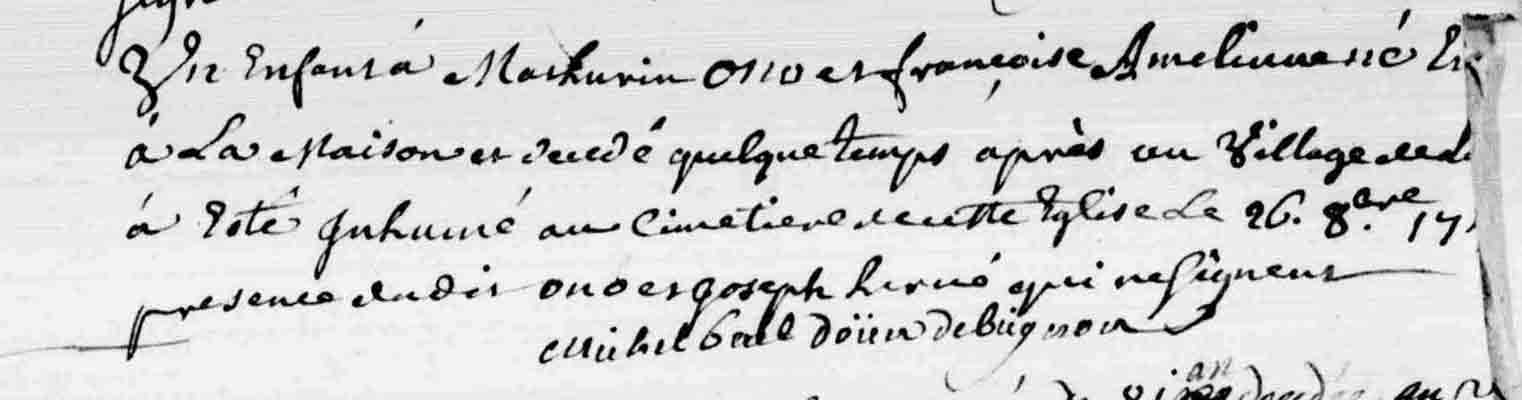 Un Enfant á Mathurin ono et françoise Amelinne né
á La Maison et decedé quelque temps aprés au Village de
á Esté Inhumé au Cimetiere de cette Eglise Le 26. 8.bre 17
presence du dit ono et Joseph hervé qui ne signent
Michel
an